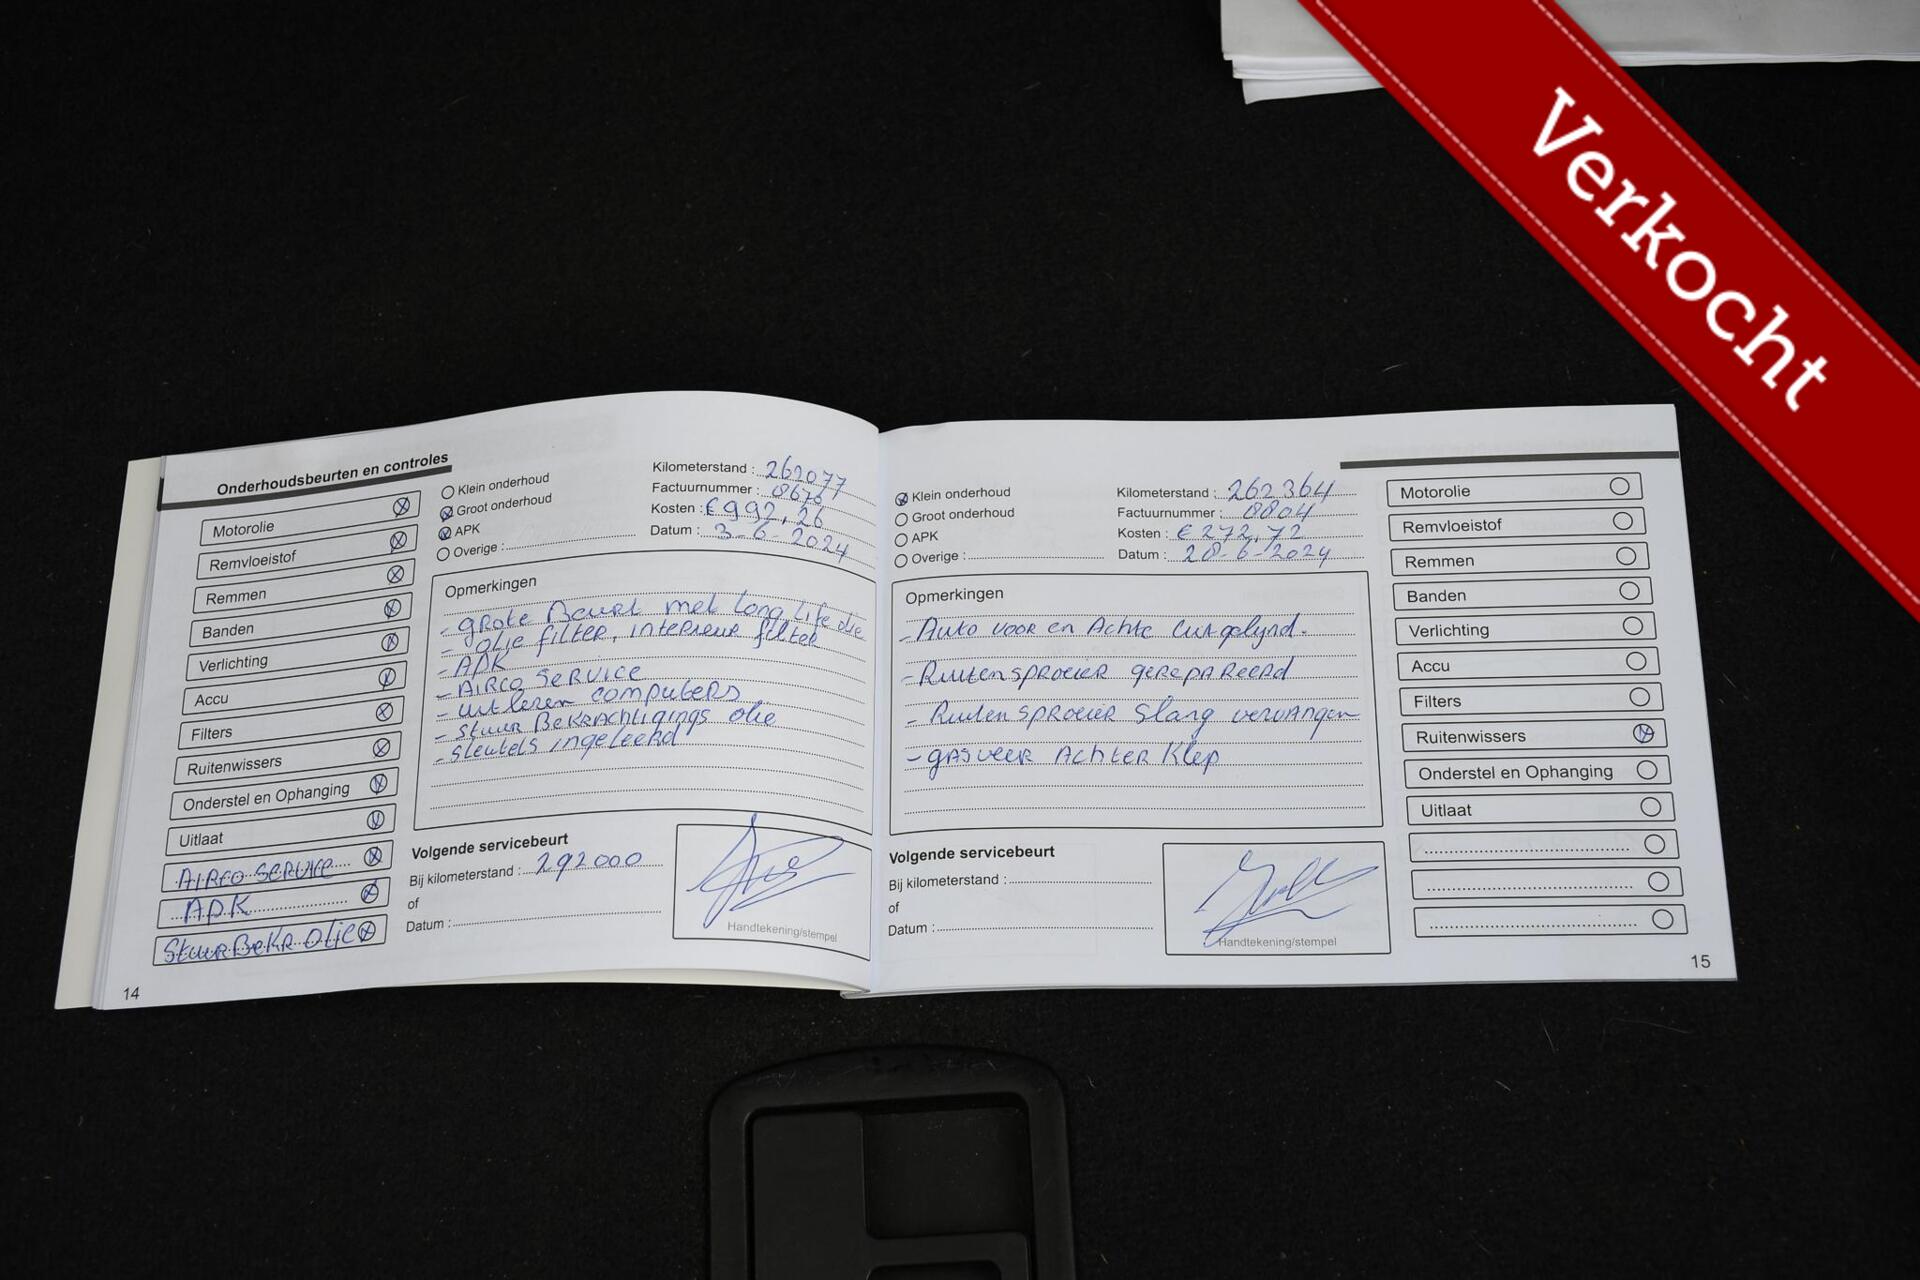 Verkocht
Onderhoudsbeurten en controles
Motorolie
Remvloeistof
Remmen
Banden
Verlichting
Accu
Filters
Ruitenwissers
Onderstel en Ophanging
Uitlaat
AIRCO SERVICE
APK
StuurBeKR olie
14
Klein onderhoud
Groot onderhoud
APK
Overige :
Kilometerstand : 262077
Factuurnummer : 8676
Kosten : € 992,26
Datum : 3-6-2024
Opmerkingen
- grote Beurt met Long Life olie
- olie filter, interieur filter
- APK
- AIRCO SERVICE
- uit lezen computers
- stuur BeKRAChtigings olie
- sleutels ingeleerd
Volgende servicebeurt
Bij kilometerstand : 292000
of
Datum :
Handtekening/stempel
Klein onderhoud
Groot onderhoud
APK
Overige :
Kilometerstand : 262364
Factuurnummer : 8804
Kosten : € 272,72
Datum : 28-6-2024
Opmerkingen
- Auto voor en Achte uitgelijnd.
- Ruitensproeier gerepareerd
- Ruitensproeier slang vervangen
- gasveer Achter Klep
Volgende servicebeurt
Bij kilometerstand :
of
Datum :
Handtekening/stempel
Motorolie
Remvloeistof
Remmen
Banden
Verlichting
Accu
Filters
Ruitenwissers
Onderstel en Ophanging
Uitlaat
15